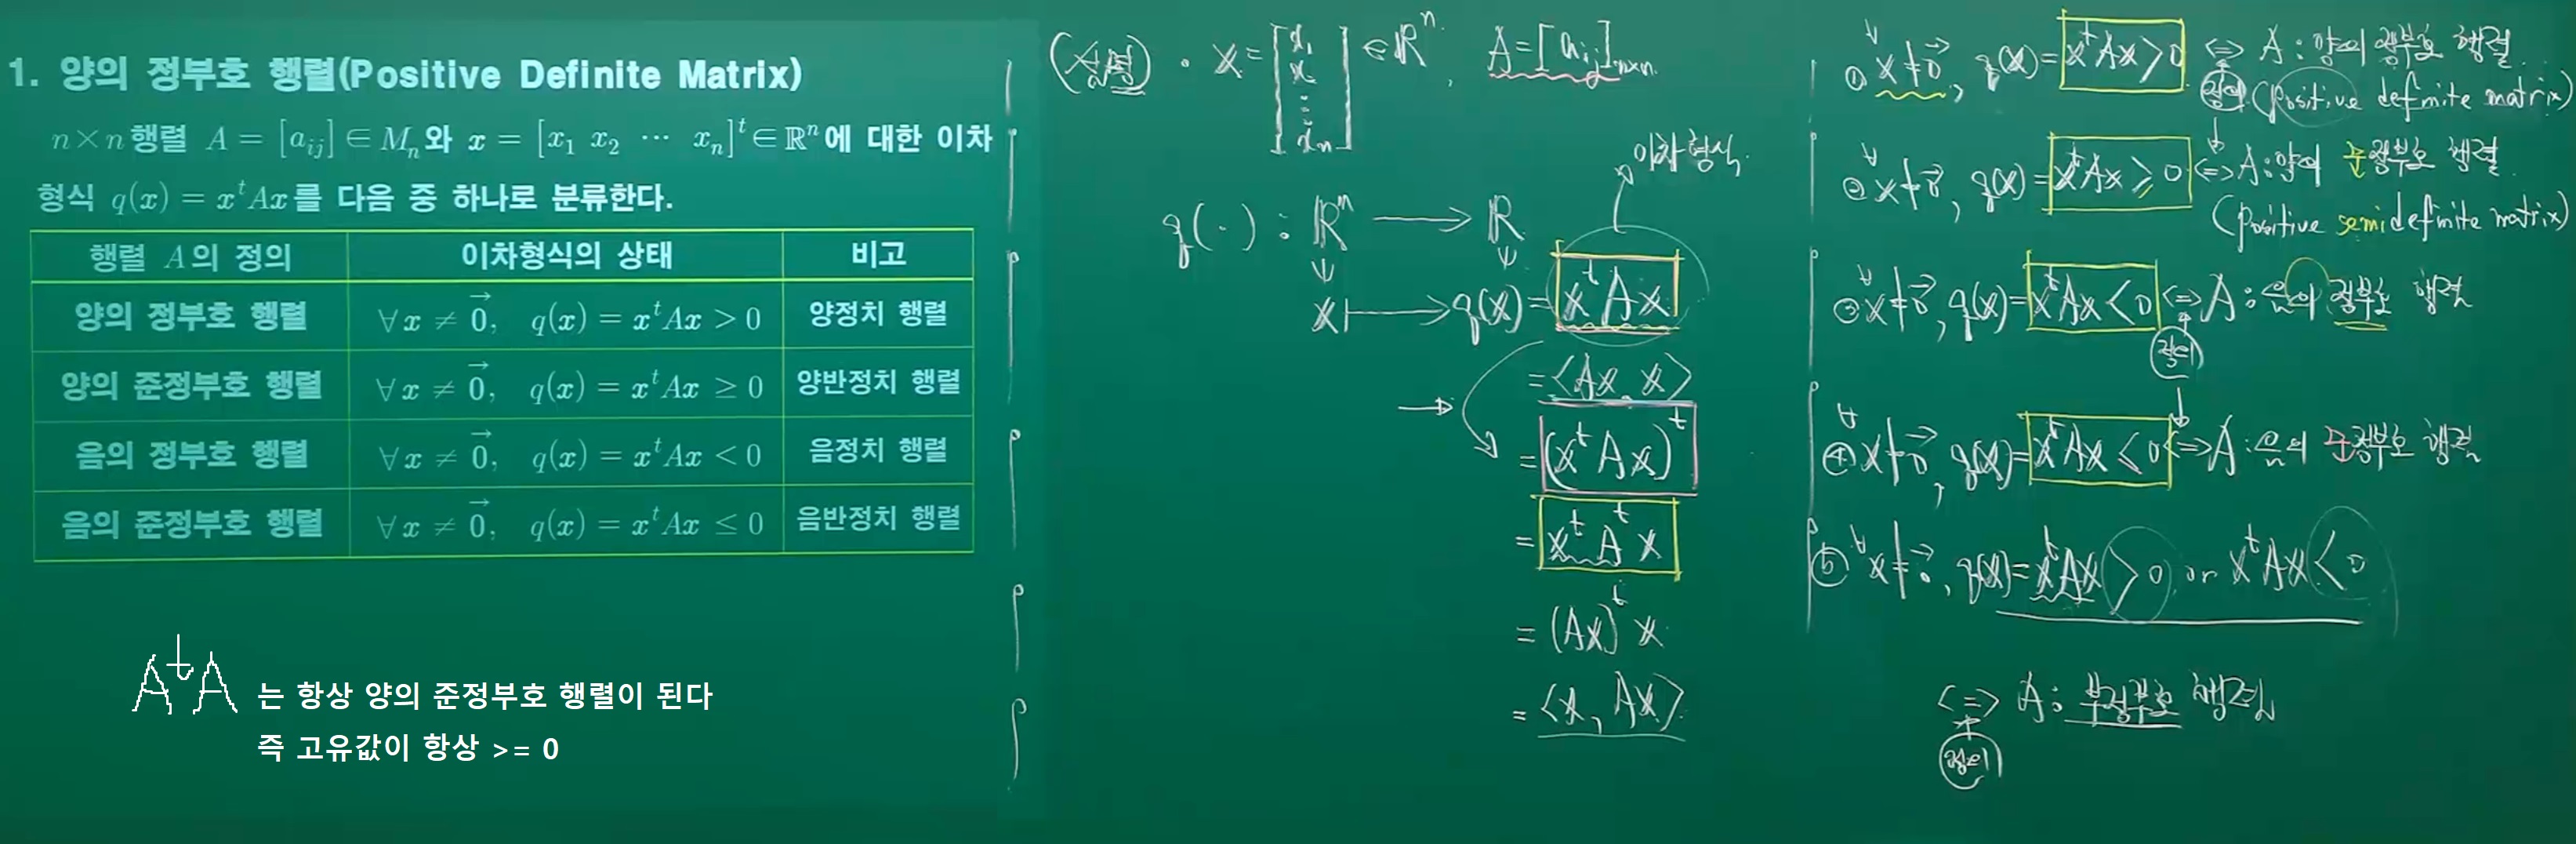 1. 양의 정부호 행렬(Positive Definite Matrix)
n×n 행렬 A = [aᵢⱼ] ∈ Mₙ와 x = [x₁ x₂ ⋯ xₙ]ᵗ ∈ ℝⁿ에 대한 이차
형식 q(x) = xᵗAx를 다음 중 하나로 분류한다.
행렬 A의 정의 이차형식의 상태 비고
양의 정부호 행렬 ∀x ≠ 0⃗, q(x) = xᵗAx > 0 양정치 행렬
양의 준정부호 행렬 ∀x ≠ 0⃗, q(x) = xᵗAx ≥ 0 양반정치 행렬
음의 정부호 행렬 ∀x ≠ 0⃗, q(x) = xᵗAx < 0 음정치 행렬
음의 준정부호 행렬 ∀x ≠ 0⃗, q(x) = xᵗAx ≤ 0 음반정치 행렬
AᵗA 는 항상 양의 준정부호 행렬이 된다
즉 고유값이 항상 >= 0
(설명) · x = [x₁ x ⋮ xₙ] ∈ ℝⁿ, A = [aᵢⱼ]ₙ×ₙ
이차형식
q(·) : ℝⁿ → ℝ
x ↦ q(x) = xᵗAx
= <Ax, x>
→ = (xᵗAx)ᵗ
= xᵗAᵗx
= (Ax)ᵗx
= <x, Ax>
① ∀x ≠ 0⃗, q(x) = xᵗAx > 0 ⇔ A : 양의 정부호 행렬
정의 (positive definite matrix)
② ∀x ≠ 0⃗, q(x) = xᵗAx ≥ 0 ⇔ A : 양의 준정부호 행렬
(positive semidefinite matrix)
③ ∀x ≠ 0⃗, q(x) = xᵗAx < 0 ⇔ A : 음의 정부호 행렬
정의
④ ∀x ≠ 0⃗, q(x) = xᵗAx ≤ 0 ⇔ A : 음의 준정부호 행렬
⑤ ∀x ≠ 0⃗, q(x) = xᵗAx > 0 or xᵗAx < 0
⇔ A : 부정부호 행렬
정의